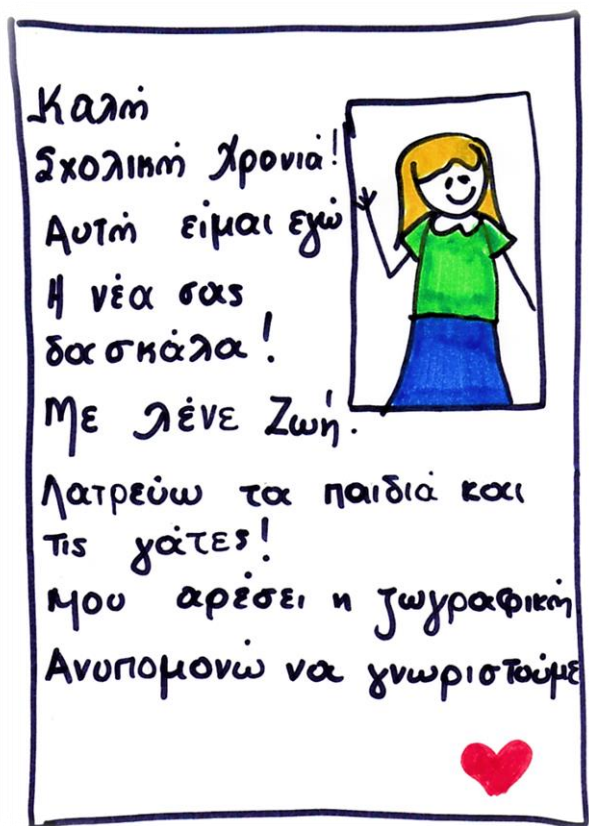 Καλή
Σχολική Χρονιά!
Αυτή είμαι εγώ
Η νέα σας
δασκάλα!
Με λένε Ζωή.
Λατρεύω τα παιδιά και
τις γάτες!
Μου αρέσει η ζωγραφική
Ανυπομονώ να γνωριστούμε